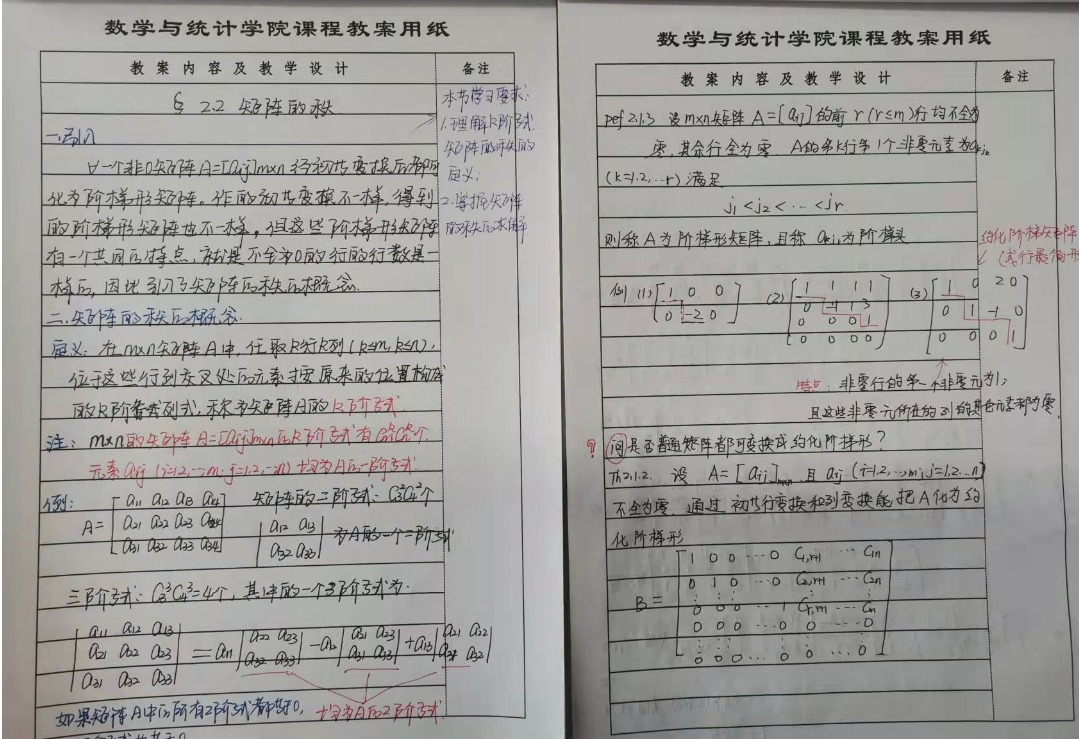 数学与统计学院课程教案用纸
教案内容及教学设计
备注
§ 2.2 矩阵的秩
本节学习要求:
1.理解k阶子式
矩阵的秩的
定义;
2.掌握矩阵
的秩的求解
一.引入
∀一个非0矩阵A=[aij]m×n 经初等变换后都可
化为阶梯形矩阵。作的初等变换不一样,得到
的阶梯形矩阵也不一样,但这些阶梯形矩阵
有一个共同的特点,就是不全为0的行的行数是一
样的,因此引入了矩阵的秩的概念.
二.矩阵的秩的概念.
定义:在m×n矩阵A中,任取k行k列(k≤m,k≤n),
位于这些行列交叉处的元素按原来的位置构成
的k阶行列式,称为矩阵A的k阶子式.
注:m×n的矩阵A=[aij]m×n的k阶子式有CmkCnk个
元素aij (i=1,2,…,m; j=1,2,…,n) 均为A的一阶子式.
例:
A= [a11 a12 a13 a14
a21 a22 a23 a24
a31 a32 a33 a34]
矩阵的二阶子式:C3²C4²个
|a12 a13
a32 a33| 为A的一个二阶子式
三阶子式:C3³C4³=4个,其中的一个3阶子式为:
|a11 a12 a13
a21 a22 a23
a31 a32 a33| = a11 |a22 a23 a32 a33| - a12 |a21 a23 a31 a33| + a13 |a21 a22 a31 a32|
如果矩阵A中的所有2阶子式都等于0,
均为A的2阶子式.
数学与统计学院课程教案用纸
教案内容及教学设计
备注
Def 2.1.3 设m×n矩阵A=[aij]的前r(r≤m)行均不全为
零,其余行全为零. A的第k行第1个非零元素为akjk
(k=1,2,…r)满足
j1<j2<…<jr.
则称A为阶梯形矩阵,且称akjk为阶梯头
约化阶梯矩阵
(或行最简形
例 (1) [1 0 0
0 -2 0]
(2) [1 1 1 1
0 -1 1 3
0 0 0 1
0 0 0 0]
(3) [1 0 2 0
0 1 -1 0
0 0 0 1]
特点:非零行的第一个非零元为1;
且这些非零元所在的列的其它元素都为零
? 问是否普通矩阵都可变换成约化阶梯形?
Th2.1.2. 设 A=[aij]m×n 且 aij (i=1,2,…,m, j=1,2,…n)
不全为零,通过初等行变换和列变换能把A化为约
化阶梯形
B= [1 0 0 … 0 C1,r+1 … C1n
0 1 0 … 0 C2,r+1 … C2n
⋮
0 0 0 … 1 Cr,r+1 … Crn
0 0 0 … 0 0 … 0
⋮
0 0 0 … 0 0 … 0]